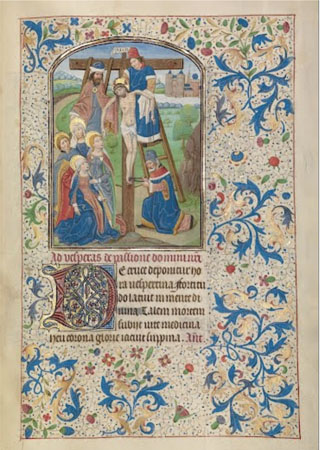 Ad vesperas de passione domini nri
De cruce deponitur ho
ra vespertina Fortitu
do latuit in mente di
uina Talem mortem
subijt vite medicina
heu corona glorie iacuit supina. Ant